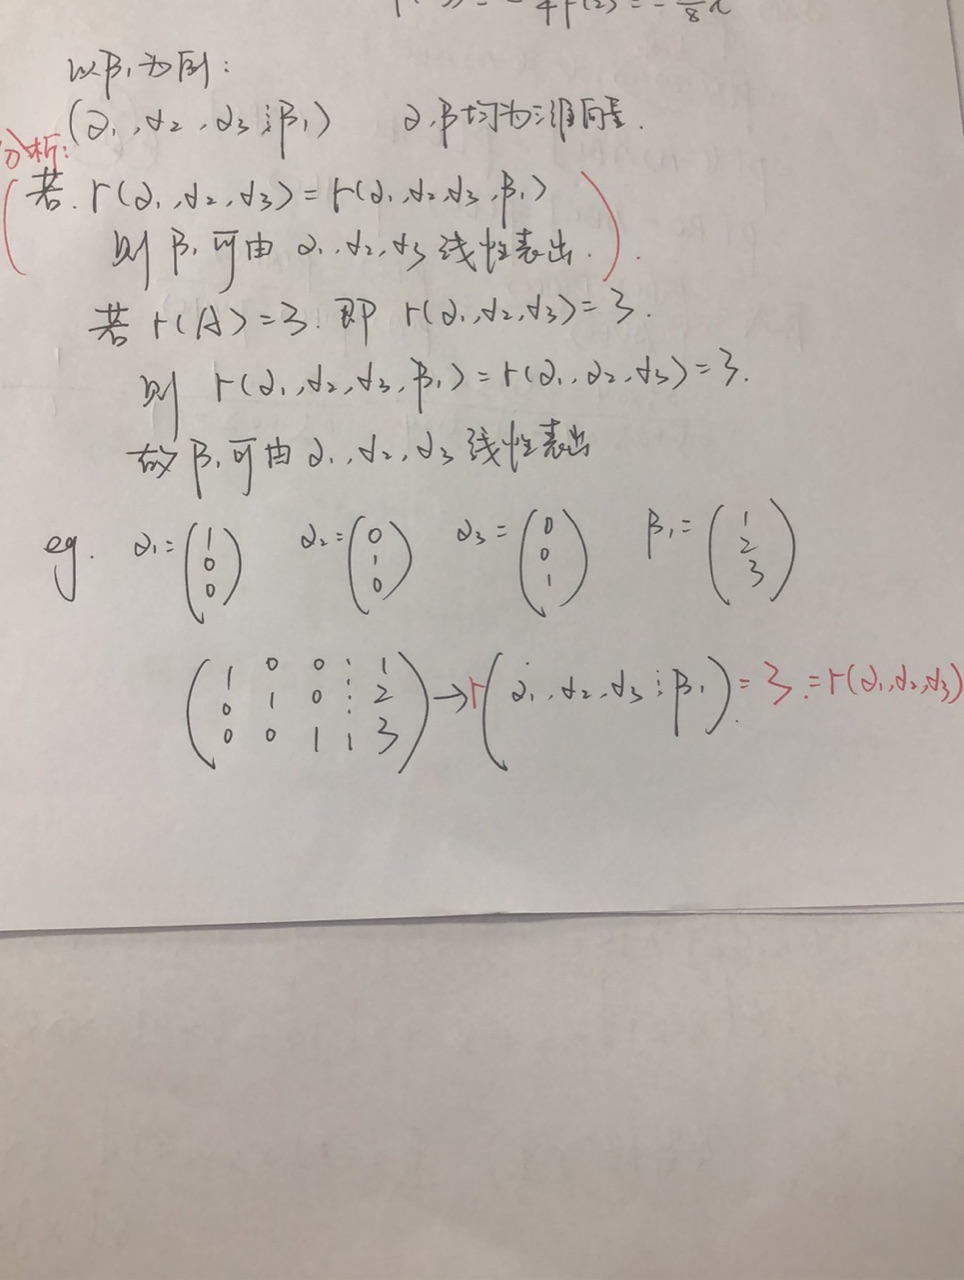 4f(2) = -
8
以β₁为例:
(α₁,α₂,α₃⋮β₁) α.β均为三维向量.
分析:
若.r(α₁,α₂,α₃)=r(α₁,α₂,α₃,β₁)
则β₁可由α₁,α₂,α₃线性表出.
若r(A)=3.即r(α₁,α₂,α₃)=3.
则r(α₁,α₂,α₃,β₁)=r(α₁,α₂,α₃)=3.
故β₁可由α₁,α₂,α₃线性表出
eg. α₁=(1 0 0) α₂=(0 1 0) α₃=(0 0 1) β₁=(1 2 3)
(1 0 0 ⋮ 1
0 1 0 ⋮ 2
0 0 1 ⋮ 3) → r(α₁,α₂,α₃⋮β₁)=3.=r(α₁,α₂,α₃)